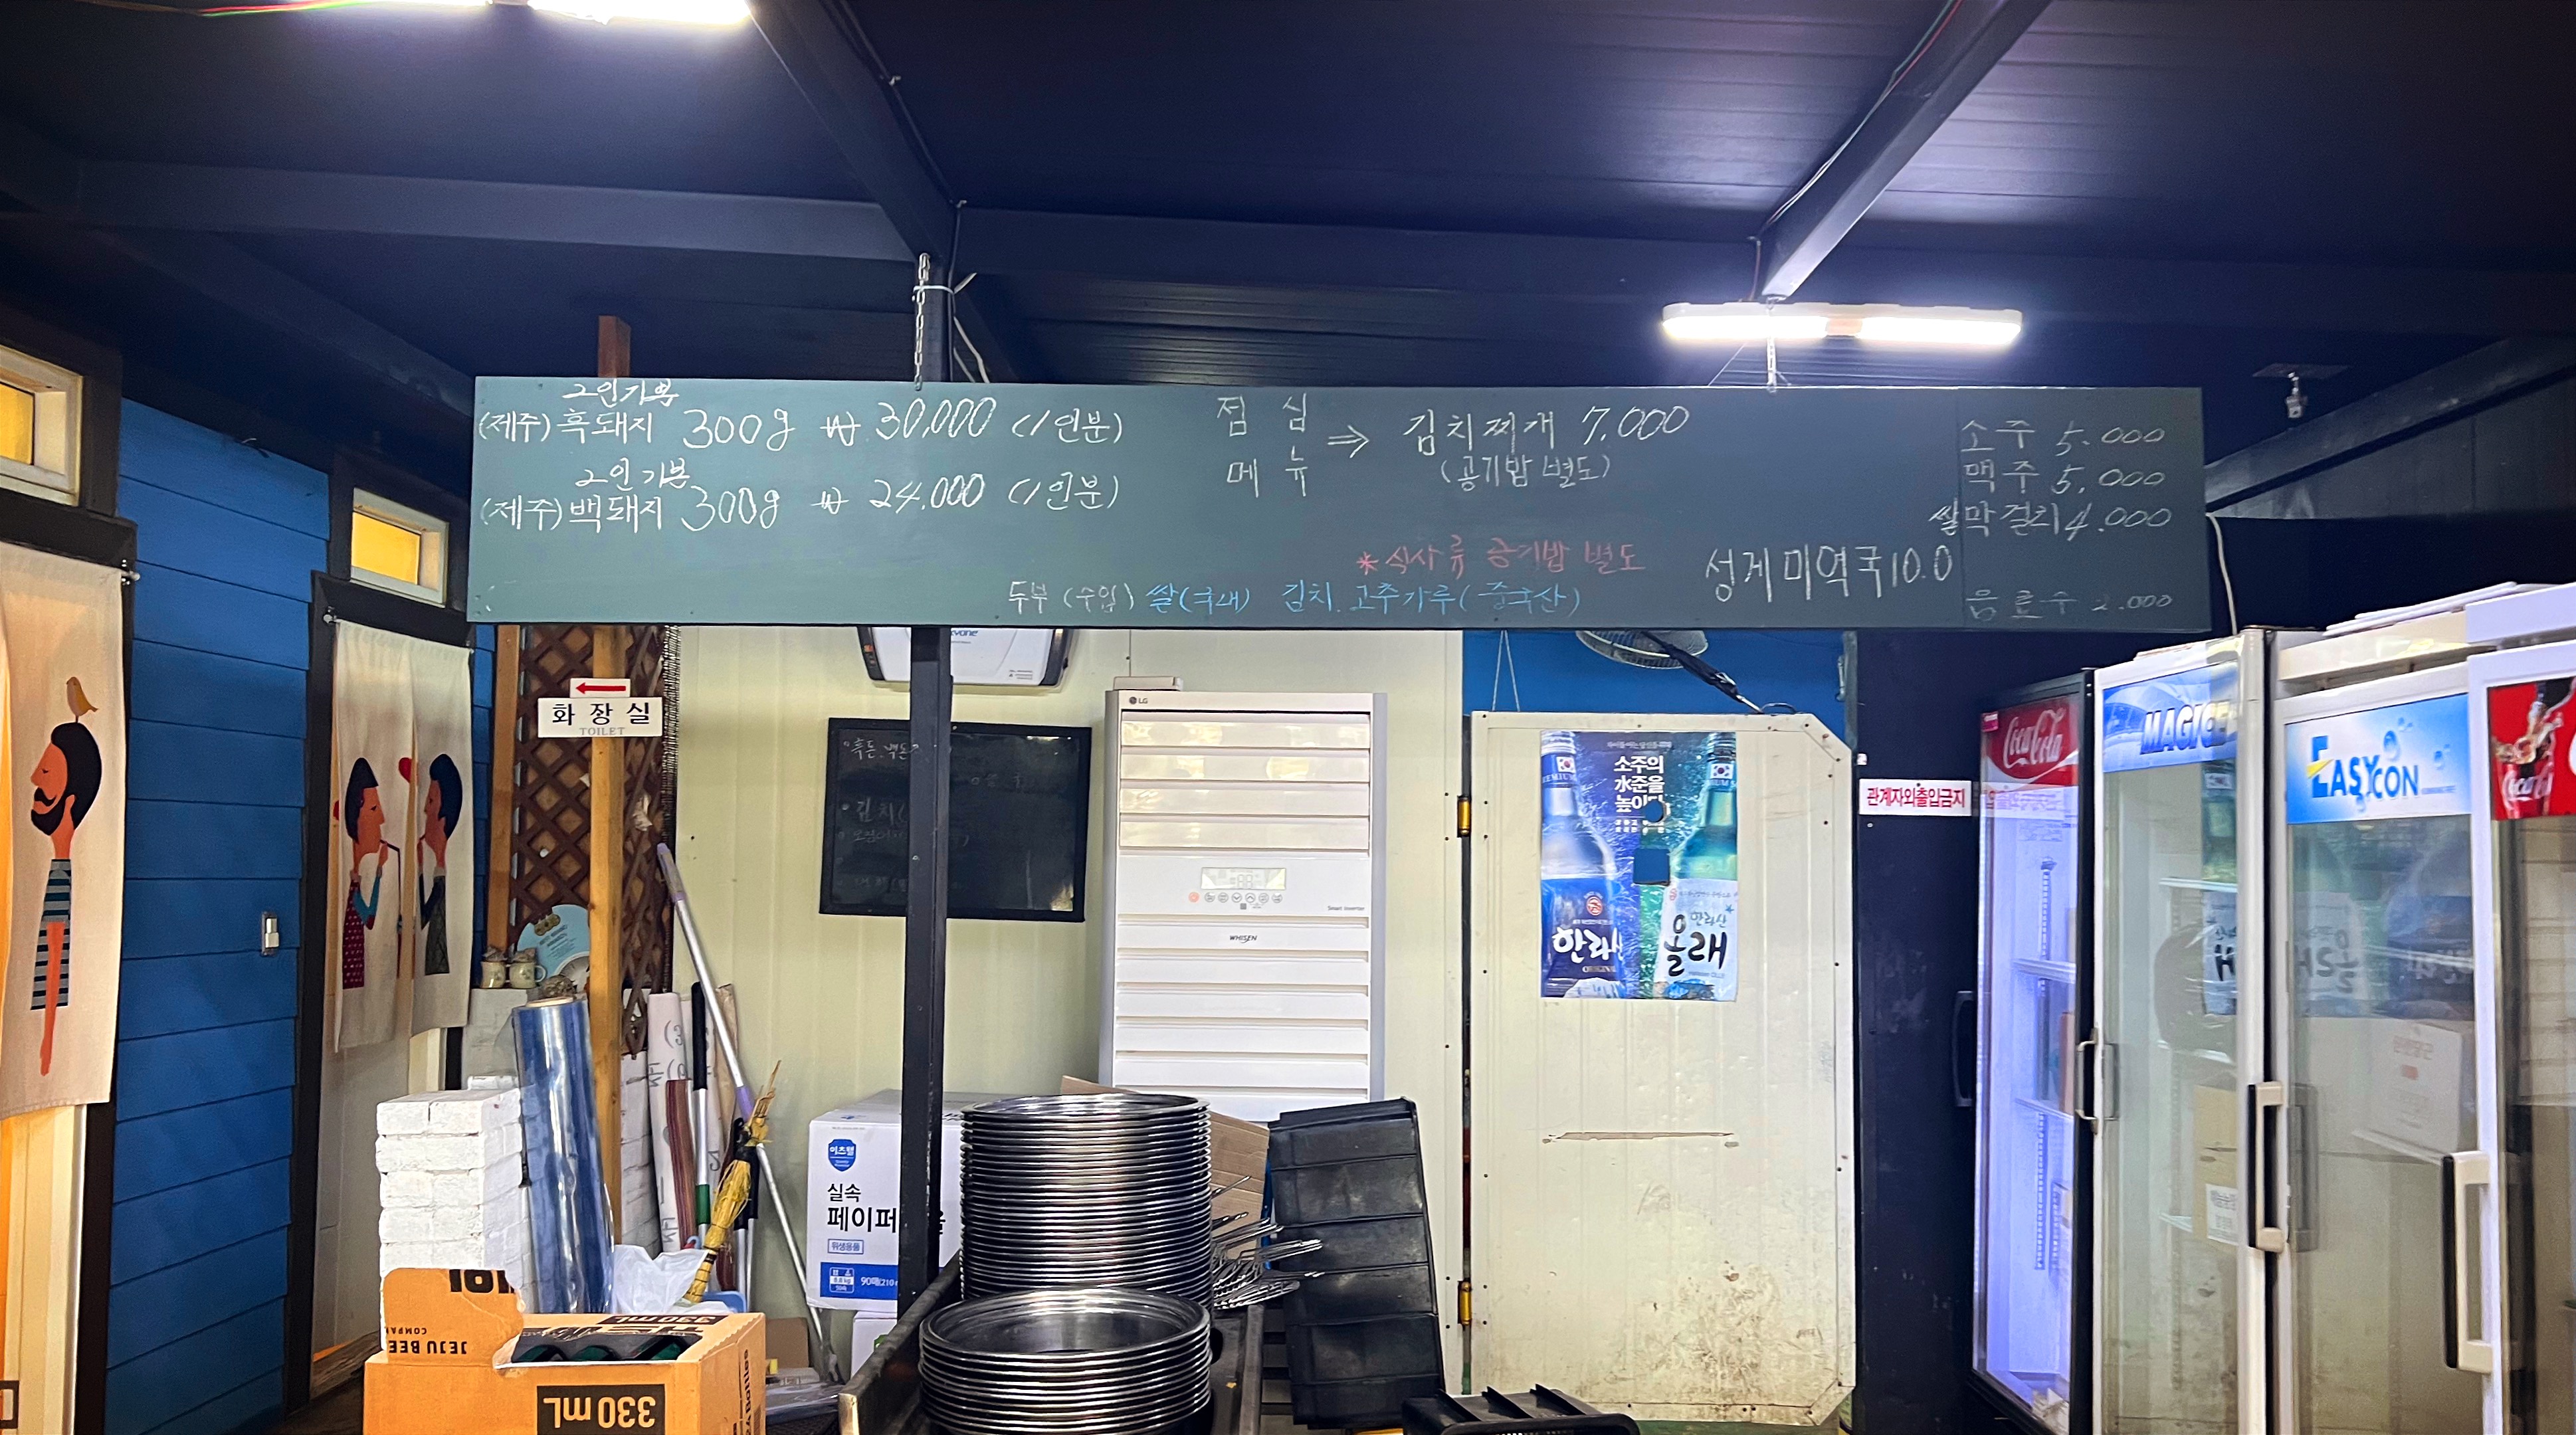 2인기본
(제주) 흑돼지 300g ₩ 30,000 (1인분)
2인 기본
(제주) 백돼지 300g ₩ 24.000 (1인분)
점심
메뉴 ⇒ 김치찌개 7.000
(공기밥 별도)
* 식사류 공기밥 별도
두부 (수입) 쌀(국내) 김치. 고추가루 (중국산)
성게미역국 10.0
소주 5.000
맥주 5.000
쌀막걸리 4.000
음료수 2.000
화장실
TOILET
LG
Smart Inverter
WHISEN
소주의
水준을
높이다
한라산
ORIGINAL
한라산
올래
관계자외출입금지
Coca-Cola
MAGIC
EASYCON
실속
페이퍼
위생용품
JEJU BEE
COMPA
330 mL
330 mL